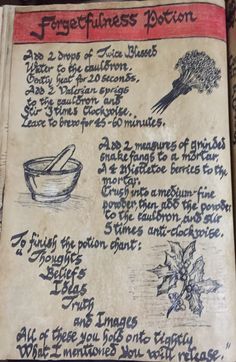 Forgetfulness Potion
Add 2 drops of Nice Blessed
Water to the cauldron.
Gently heat for 20 seconds.
Add 2 Valerian sprigs
to the cauldron and
Stir 3 times clockwise.
Leave to brew for 45-60 minutes.
Add 2 measures of grinded
snake fangs to a mortar.
A 4 Mistletoe berries to the
mortar.
Crush into a medium-fine
powder, then add the powder
to the cauldron and stir
5 times anti-clockwise.
To finish the potion chant:
"Thoughts
Beliefs
Ideas
Truth
and Images
All of these you hold onto tightly
What I mentioned You will release."